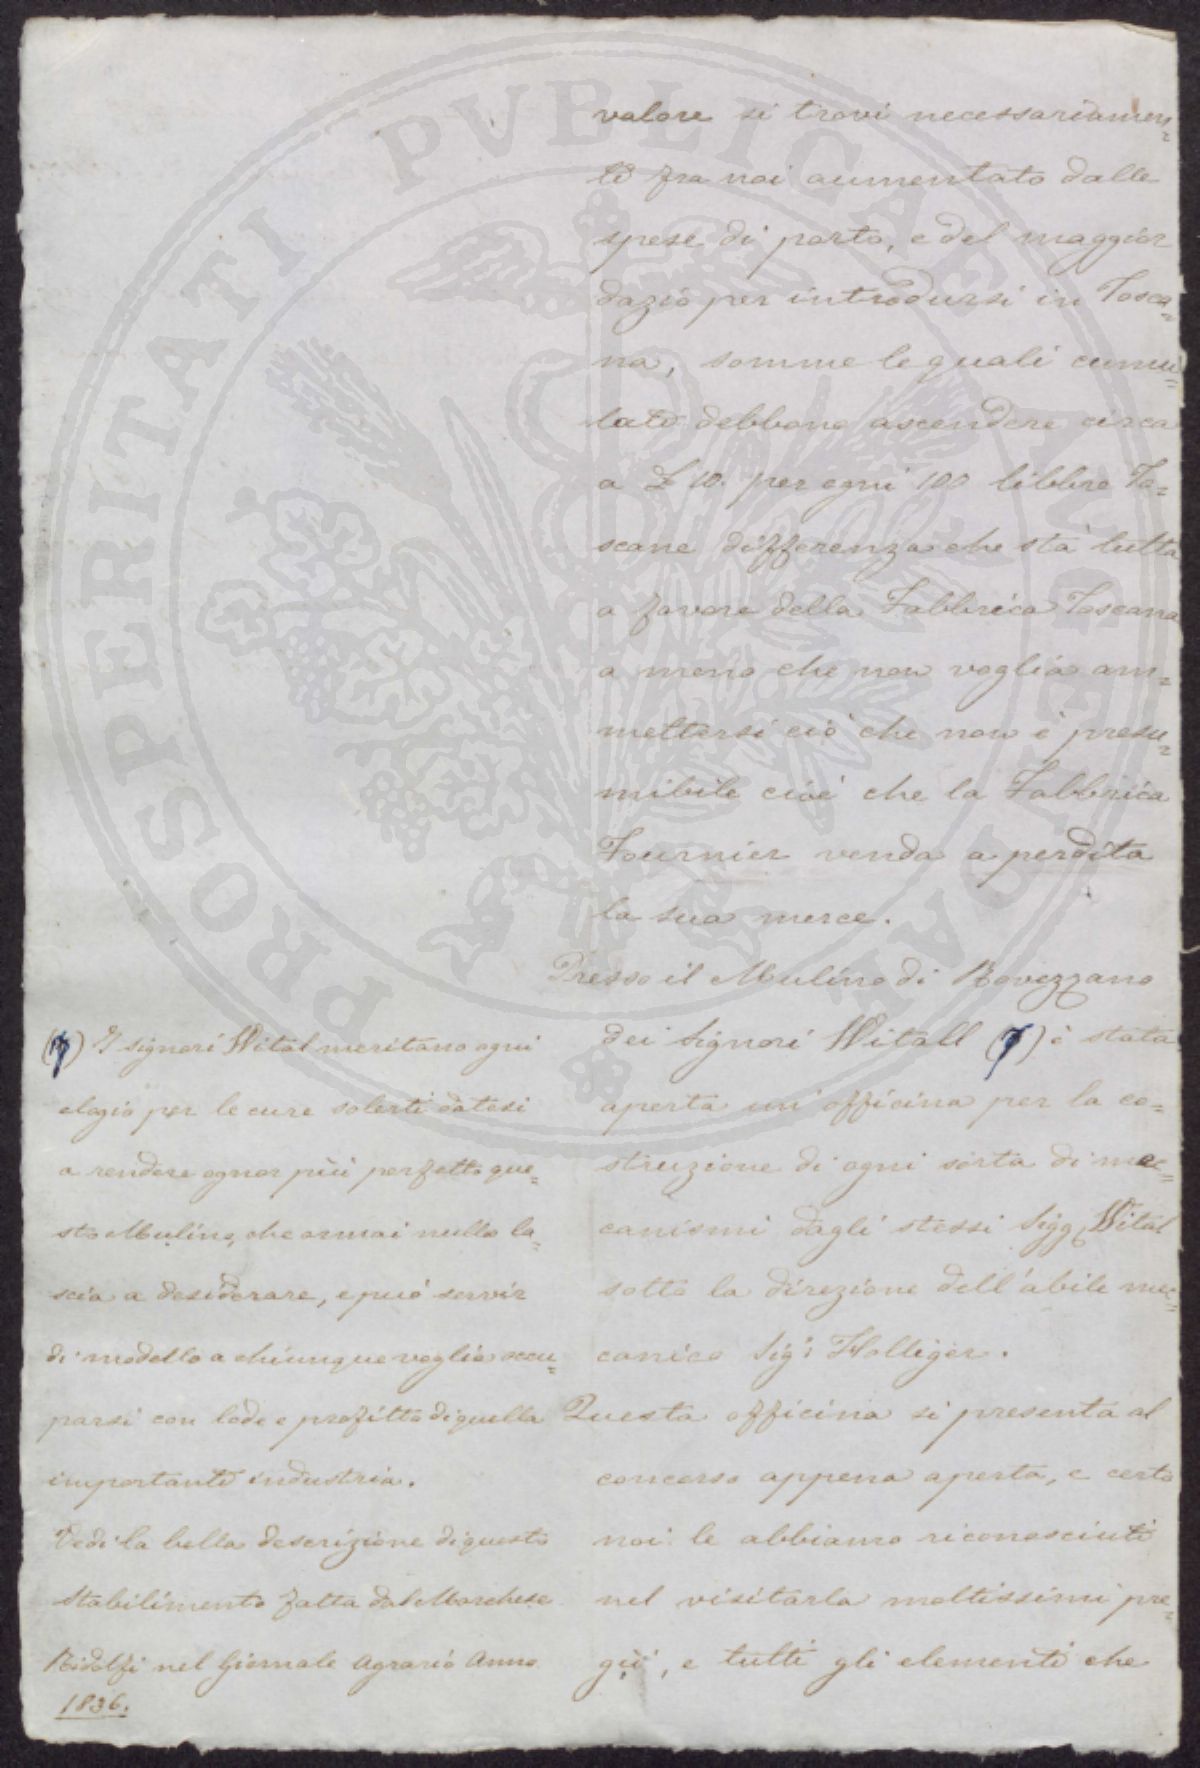 valore si trovi necessariamen=
te fra noi aumentato dalle
spese di porto, e del maggior
dazio per introdursi in Tosca=
na, somme le quali cumu=
late debbono ascendere circa
a £ 10. per ogni 100 libbre To=
scane differenza che stà tutta
a favore della Fabbrica Toscana
a meno che non voglia am=
mettersi ciò che non è presu=
mibile cioè che la Fabbrica
Fournier venda a perdita
la sua merce.
Presso il Mulino di Rovezzano
dei Signori Witall (7) è stata
aperta un' officina per la co=
struzione di ogni sorta di mec=
canismi dagli stessi Sigg Wital
sotto la direzione dell'abile mec=
canico Sig: Holliger.
Questa officina si presenta al
concorso appena aperta, e certo
noi le abbiamo riconosciuti
nel visitarla moltissimi pre=
gi, e tutti gli elementi che
(7) I signori Wital meritano ogni
elogio per le cure solerti datesi
a rendere ognor più perfetto que=
sto Mulino, che ormai nulla la=
scia a desiderare, e può servir
di modello a chiunque voglia occu=
parsi con lode e profitto di quella
importante industria.
Vedi la bella descrizione di questo
Stabilimento fatta dal Marchese
Ridolfi nel Giornale Agrario Anno
1836.
PROSPERITATI PVBLICAE AVGENDAE